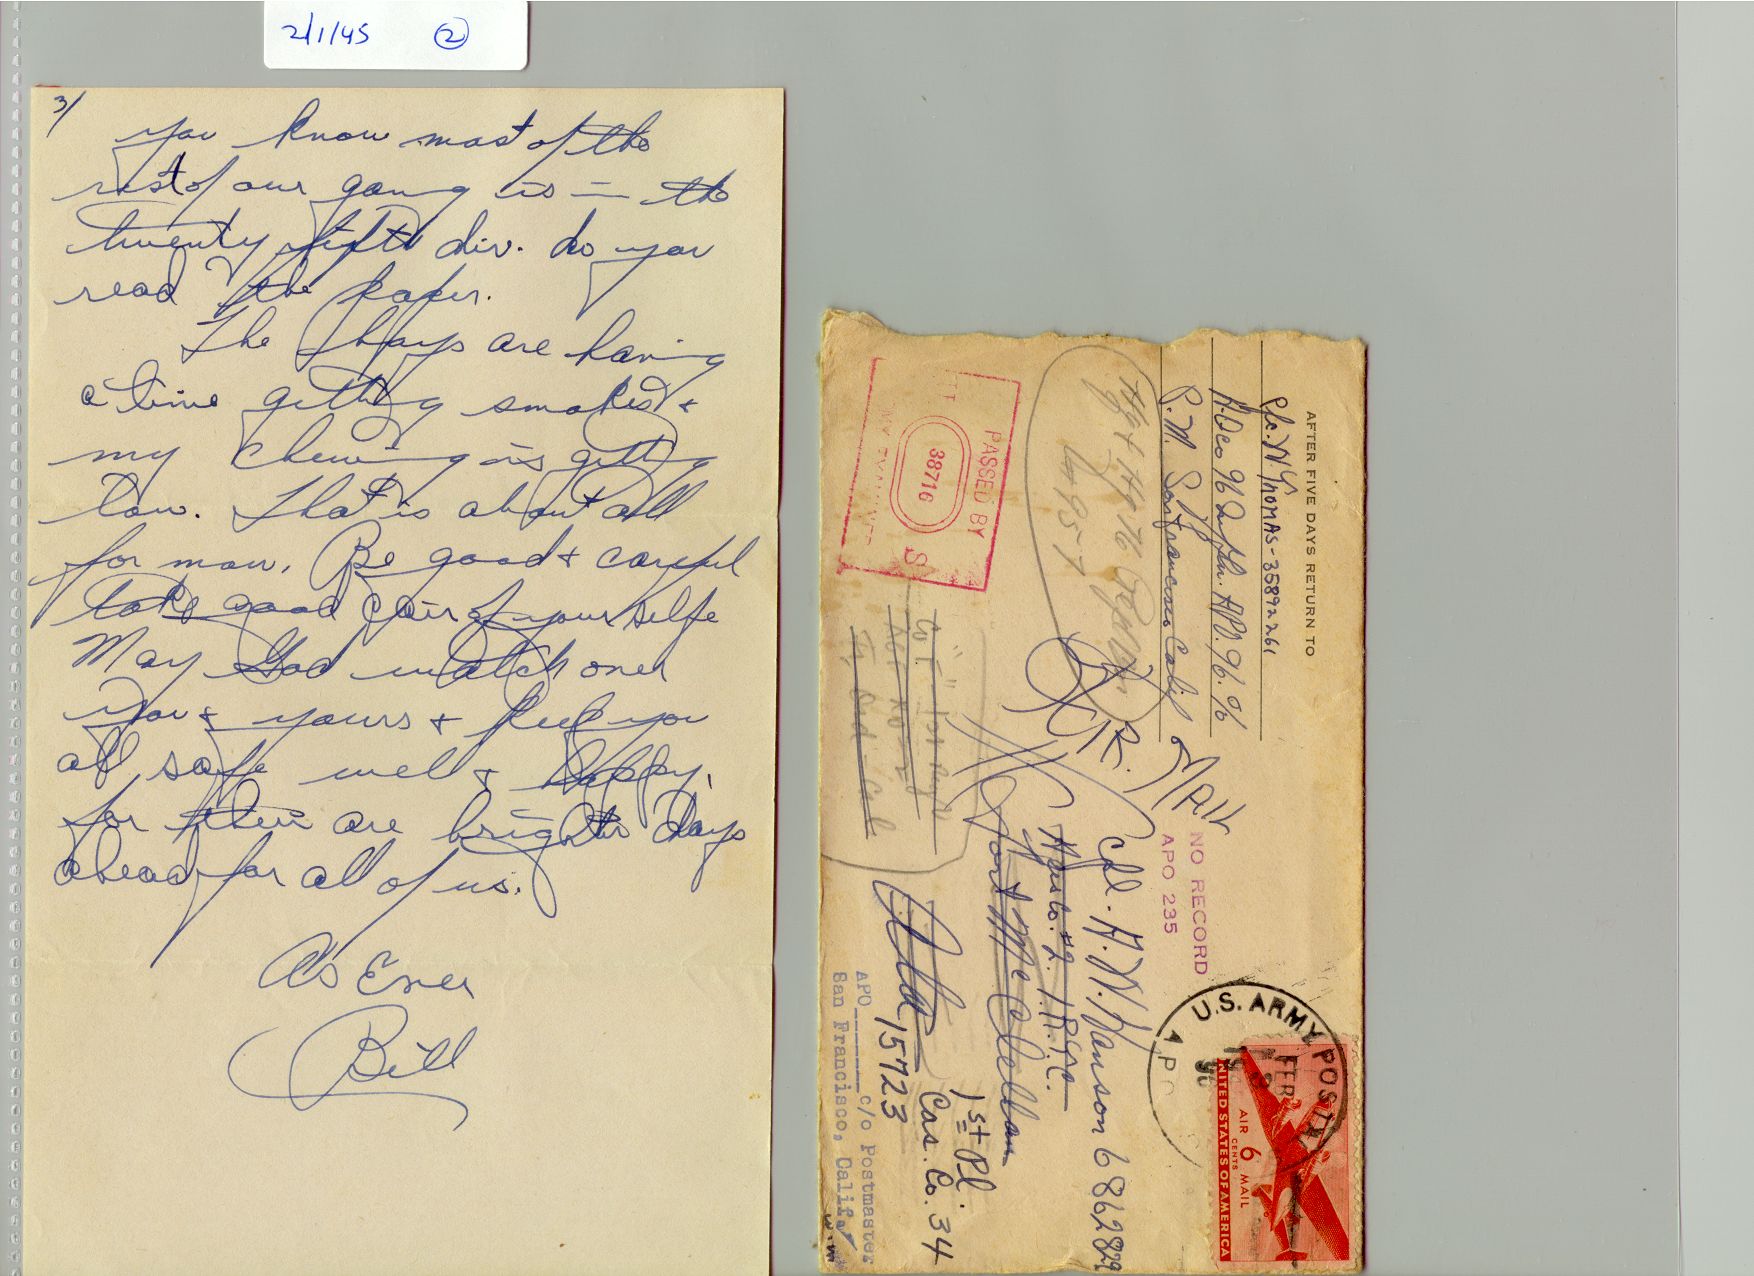 2/1/45 2
3/
you know most of the
rest of our gang is in the
twenty fifth div. do you
read the paper.
The boys are having
a time getting smokes &
my chewing is getting
low. That is about all
for now. Be good & careful
take good cair of your selfe
May God watch over
you & yours & keep you
all safe well & happy,
for their are brighter days
ahead for all of us.
As Ever
Bill
AFTER FIVE DAYS RETURN TO
Pfc. W. G. THOMAS-35892261
A.P.O. 96. %
P.M. San Francisco Calif
AIR MAIL
NO RECORD
APO 235
Cpl. A. W. Hanson 6862829
Hqs Co. #2. I.R.T.C.
Fort McClellan
1st Pl.
Cas. Co. 34
Ala
15723
APO c/o Postmaster
San Francisco, Calif.
PASSED BY
38716
S
Hq & Hq
Co "I"
U.S. ARMY POSTAL
APO
FEB
AIR 6 CENTS MAIL
UNITED STATES OF AMERICA